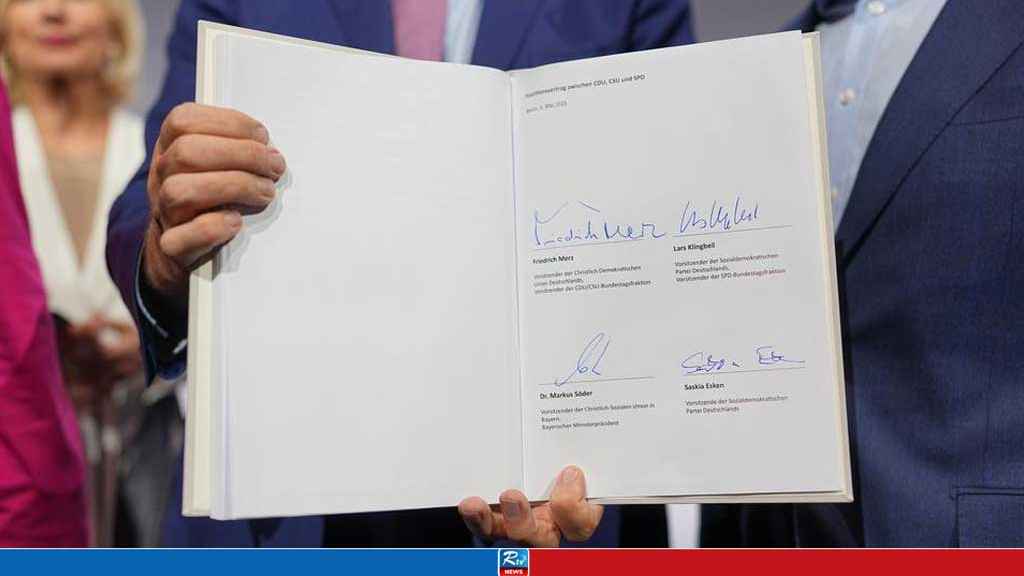 Koalitionsvertrag zwischen CDU, CSU und SPD
Berlin, 5. Mai 2025
Friedrich Merz
Friedrich Merz
Vorsitzender der Christlich Demokratischen
Union Deutschlands,
Vorsitzender der CDU/CSU-Bundestagsfraktion
Lars Klingbeil
Vorsitzender der Sozialdemokratischen
Partei Deutschlands,
Vorsitzender der SPD-Bundestagsfraktion
Dr. Markus Söder
Vorsitzender der Christlich-Sozialen Union in
Bayern,
Bayerischer Ministerpräsident
Saskia Esken
Saskia Esken
Vorsitzende der Sozialdemokratischen
Partei Deutschlands
RTV
NEWS